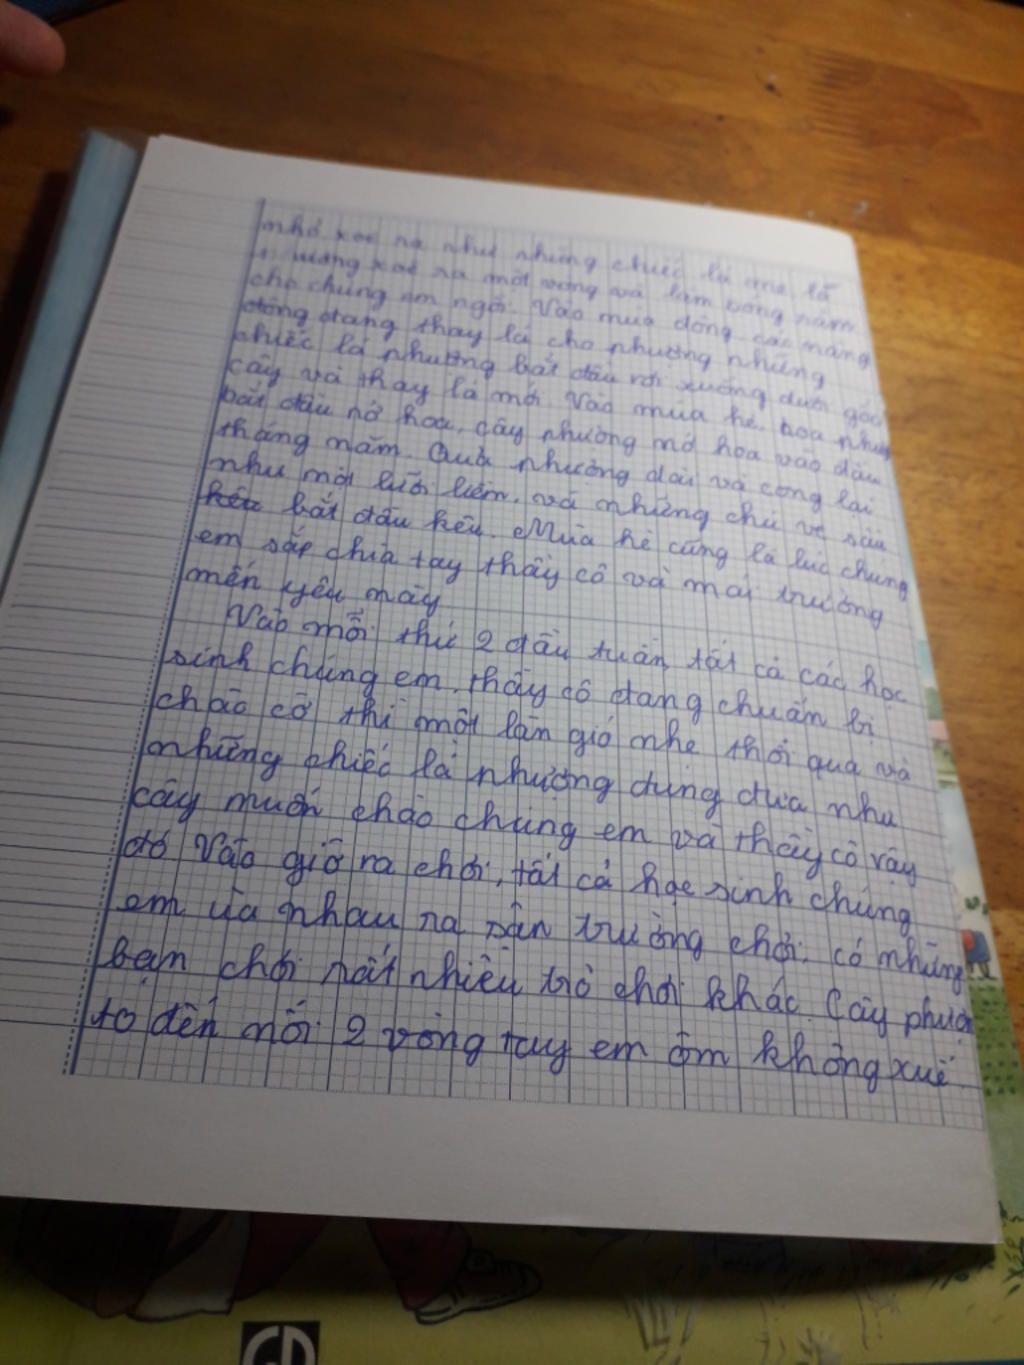 nhỏ xoè ra như những chiếc lá me, lá
phượng xoè ra một vòng và làm bóng nắm
cho chúng em ngồi. Vào mùa đông các nàng
đông đang thay lá cho phượng những
chiếc lá phượng bắt đầu rơi xuống dưới gốc
cây và thay lá mới. Vào mùa hè, hoa phượng
bắt đầu nở hoa, cây phường nở hoa vào đầu
tháng năm. Quả phượng dài và cong lại
như một lưỡi liềm. và những chú ve sầu
kêu bắt đầu kêu. Mùa hè cũng là lúc chúng
em sắp chia tay thầy cô và mái trường
mến yêu này
Vào mỗi thứ 2 đầu tuần tất cả các học
sinh chúng em, thầy cô đang chuẩn bị
chào cờ thì một làn gió nhẹ thổi qua và
những chiếc lá phượng đung đưa như
cây muốn chào chúng em và thầy cô vậy
đó Vào giờ ra chơi, tất cả học sinh chúng
em ùa nhau ra sân trường chơi. có những
bạn chơi rất nhiều trò chơi khác. Cây phượn
to đến nỗi 2 vòng tay em ôm không xuể
GD